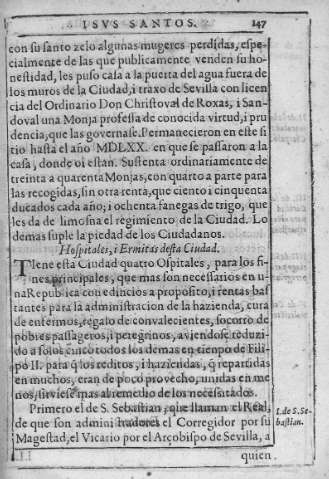 I SVS SANTOS. 147
con su santo zelo algunas mugeres perdidas, espe-
cialmente de las que publicamente venden su ho-
nestidad, les puso casa a la puerta del agua fuera de
los muros de la Ciudad, i traxo de Sevilla con licen
cia del Ordinario Don Christoval de Roxas, i San-
doval una Monja professa de conocida virtud, i pru
dencia, que las governase. Permanecieron en este si
tio hasta el año MDLXX. en que se passaron a la
casa, donde oi estàn. Sustenta ordinariamente de
treinta a quarenta Monjas, con quarto a parte para
las recogidas, sin otra renta, que ciento i cinquenta
ducados cada año; i ochenta fanegas de trigo, que
les da de limosna el regimiento de la Ciudad. Lo
demas suple la piedad de los Ciudadanos.
Hospitales, i Ermitas desta Ciudad.
TIene esta Ciudad quatro Ospitales, para los fi-
nes principales, que mas son necessarios en u-
na Republica con edificios a proposito, i rentas bas
tantes para la administracion de la hazienda, cura
de enfermos, regalo de convalecientes, socorro de
pobres passageros, i peregrinos, aviendose reduzi-
do a solos cinco todos los demas en tienpo de Fili-
po II. para q̃ los reditos, i haziendas, q̃ repartidas
en muchos, eran de poco provecho, unidas en me
nos, sirviese mas al remedio de los necessitados.
Primero el de S. Sebastian, que llaman el Real,
de que son admini hadores el Corregidor por su
Magestad, el Vicario por el Arçobispo de Sevilla, a
quien
I. de S. Se-
bastian.